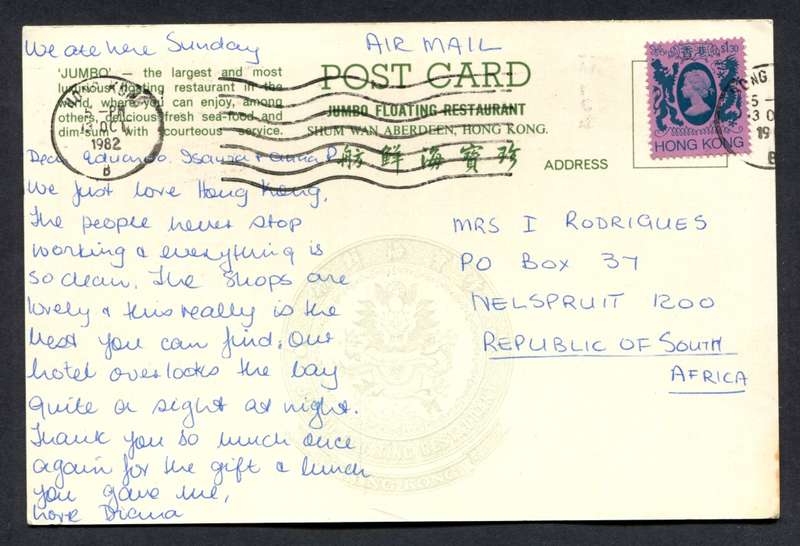 We are here Sunday
AIR MAIL
'JUMBO' — the largest and most
luxurious floating restaurant in the
world, where you can enjoy, among
others, delicious fresh sea-food and
dim-sum with courteous service.
POST CARD
JUMBO FLOATING RESTAURANT
SHUM WAN ABERDEEN, HONG KONG.
舫鮮海寶珍
ADDRESS
香港
$1.30
HONG KONG
HONG KONG
5 - PM
13 OC
1982
B
Dear Eduardo. Isaura + Anna
We just love Hong Kong,
The people never stop
working & everything is
so clean. The shops are
lovely & this really is the
best you can find. Our
hotel overlooks the bay
quite a sight at night.
Thank you so much once
again for the gift & lunch
you gave me,
Love Diana
MRS I RODRIGUES
PO BOX 37
NELSPRUIT 1200
REPUBLIC OF SOUTH
AFRICA